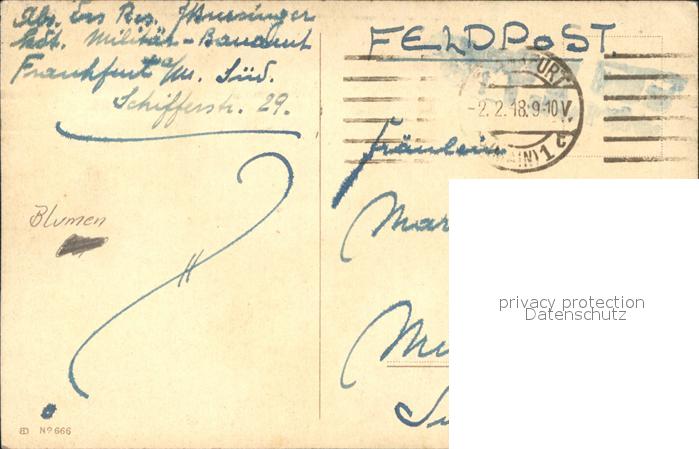 Abs. Ers Res.
kgl. Militär-Bauamt
Frankfurt a/M. Süd.
Schifferstr. 29.
FELDPOST.
FURT
-2.2.18.9-10V.
(MAIN) 1 c
Fräulein
Mar
Blumen
privacy protection
Datenschutz
Nº 666